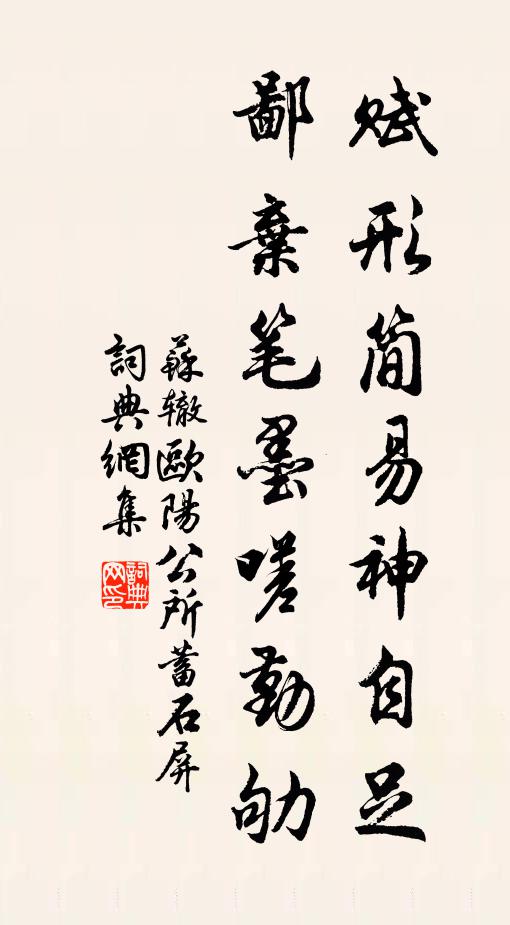 赋形简易神自足
鄙棄笔墨嗟勤劬
蘇辙歐陽公所蓄石屏
詞典網集
詞典网印